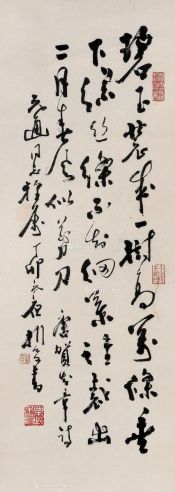 碧玉裝成一樹高萬條垂
下綠絲絛不知細葉誰裁出
二月春風似剪刀 唐賀知章詩
同志雅屬 丁卯 書